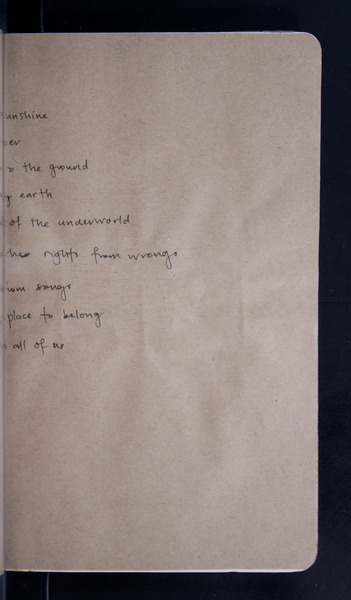 unshine
the ground
earth
of the underworld
rights from wrongs
songs
place to belong
all of us